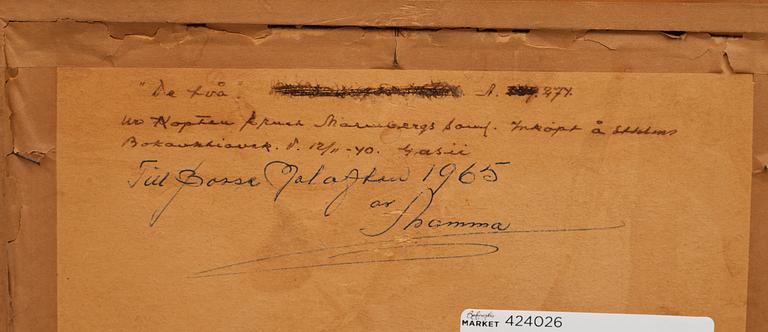 "De två" N. 271.
ur Kapten Malmbergs saml. Inköpt å Sthlms
Bokauktionsk. d. 12/11-40.
Till Bosse Julafton 1965
av Mamma
Bukowskis
MARKET 424026